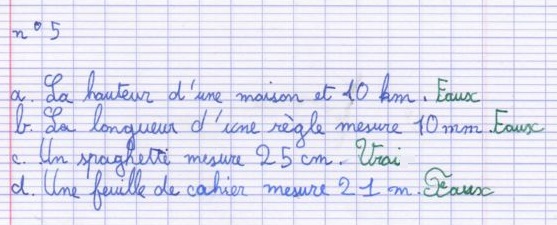 n°5
a. La hauteur d'une maison et 10 km. Faux
b. La longueur d'une règle mesure 10 mm. Faux
c. Un spaghetti mesure 25 cm. Vrai
d. Une feuille de cahier mesure 21 m. Faux